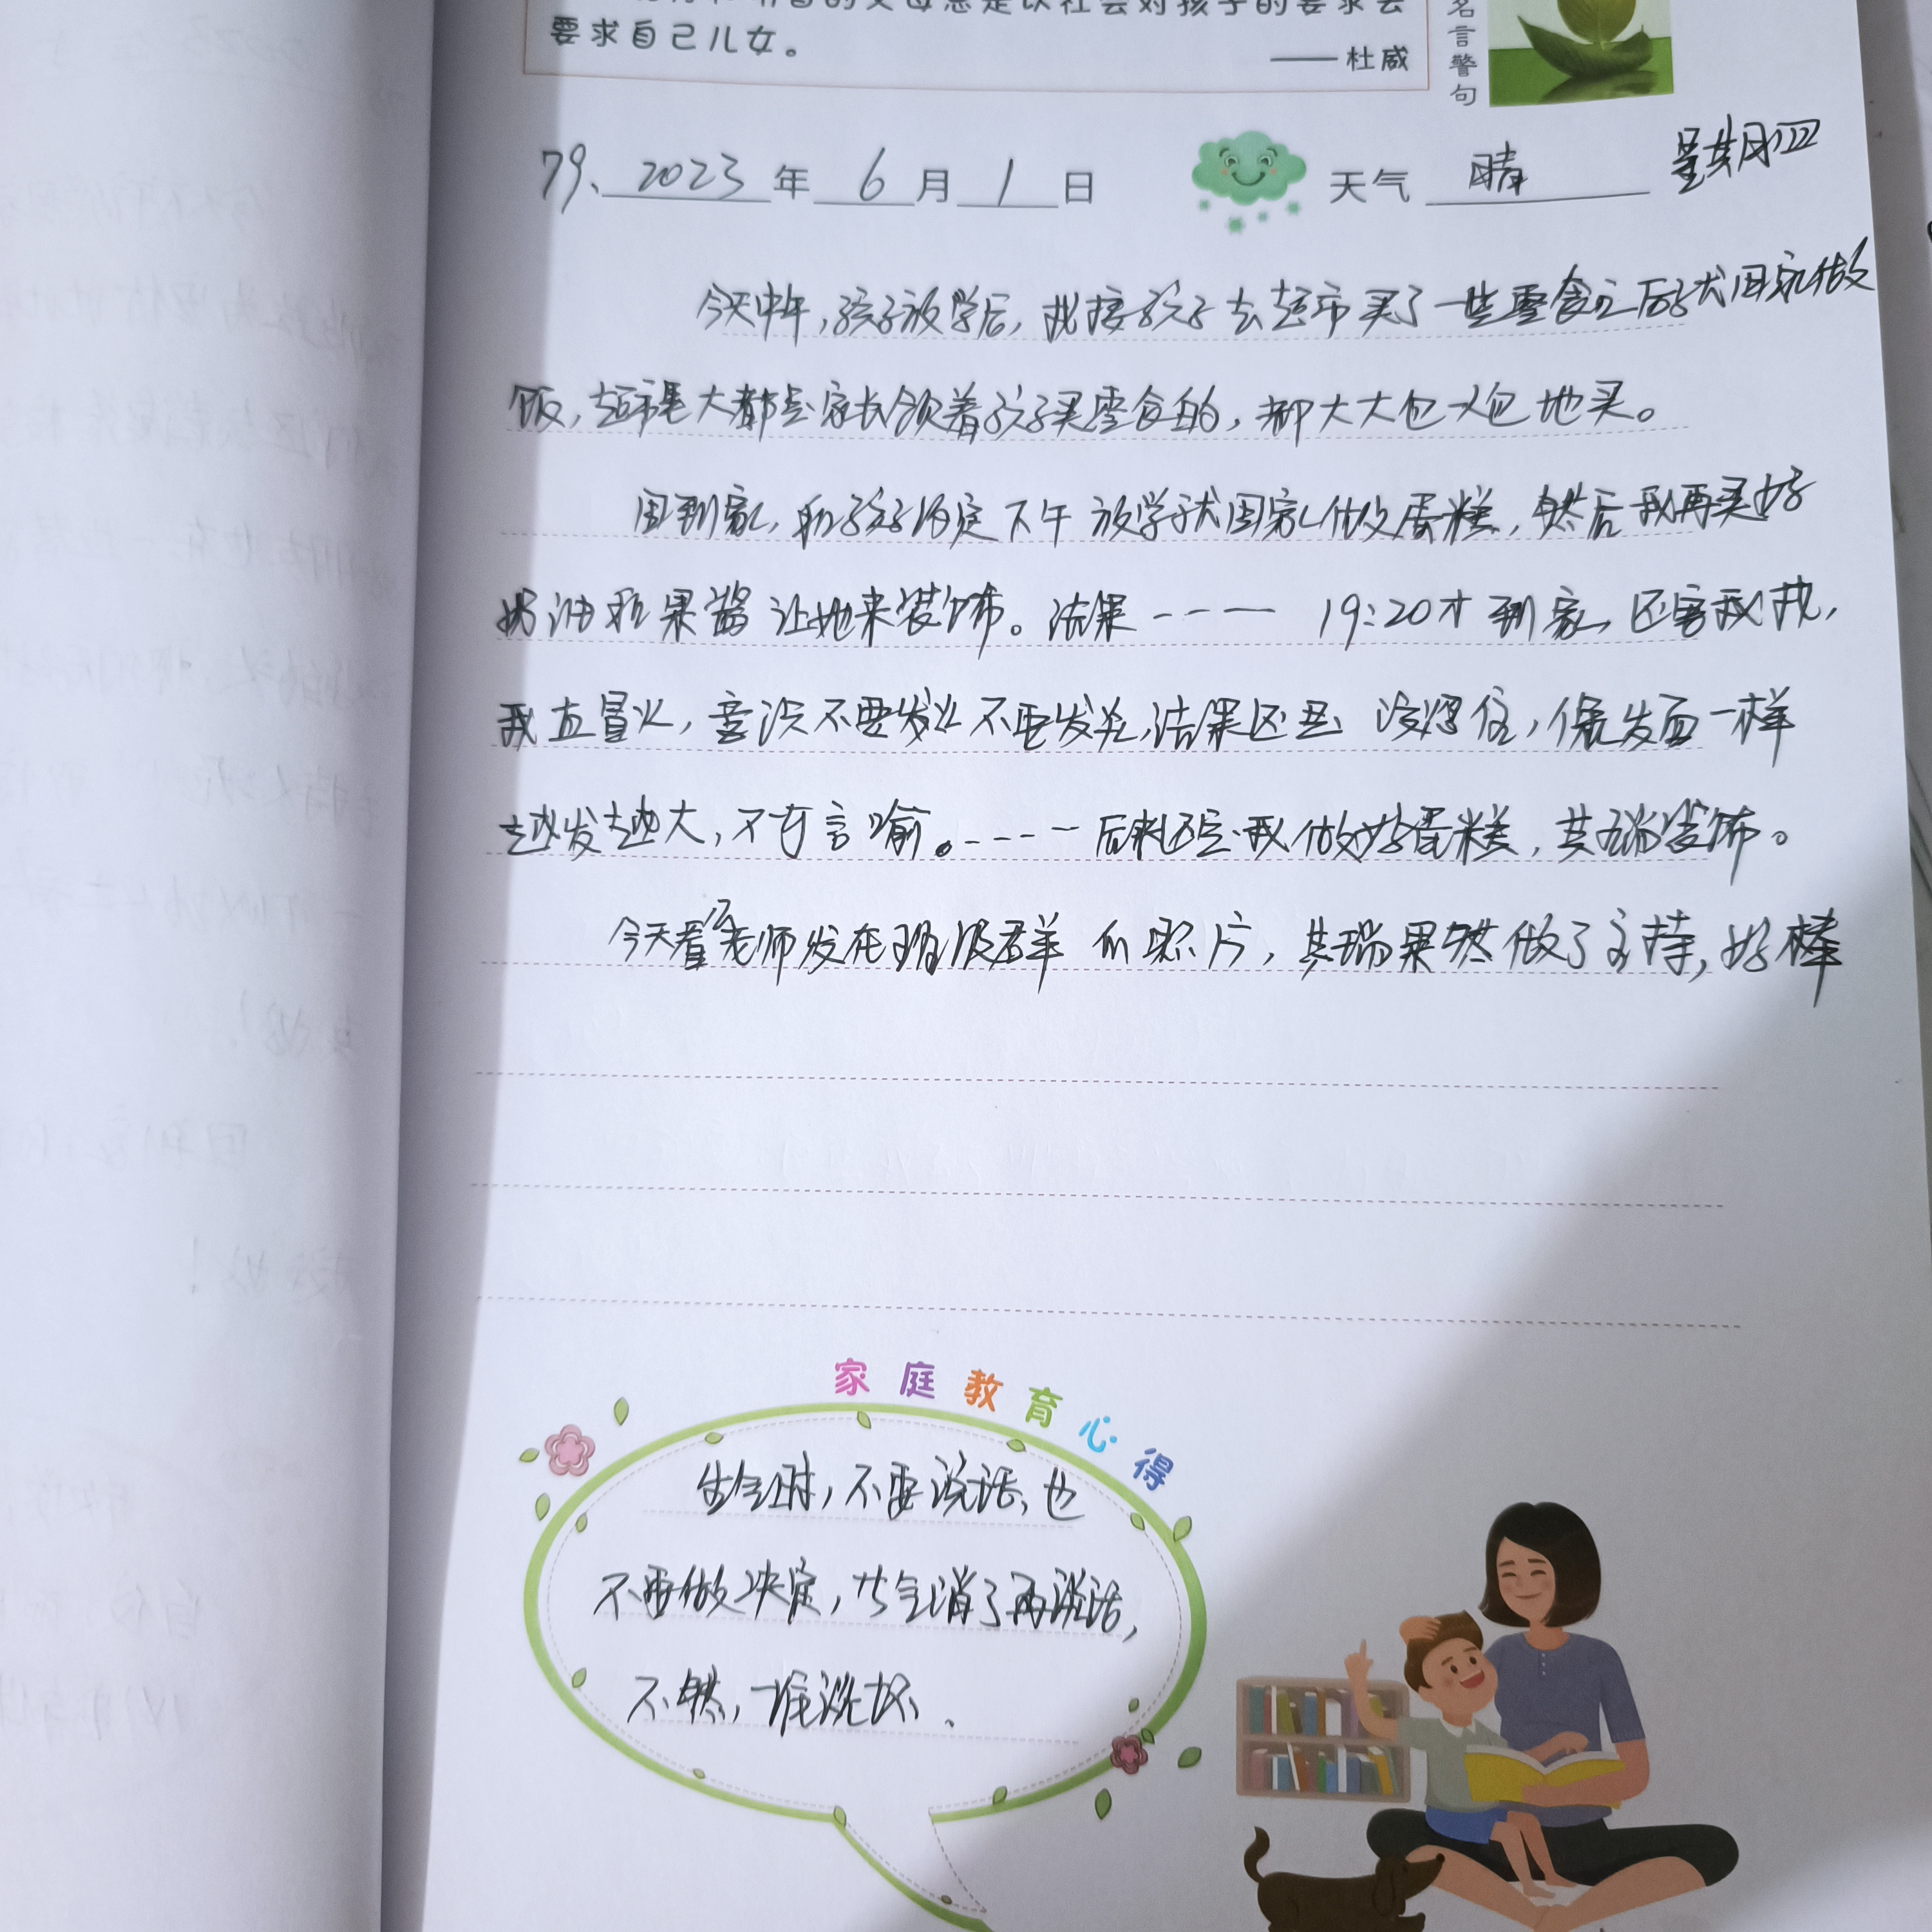 要求自己儿女。
——杜威
名言警句
79、2023年6月1日 天气 晴 星期四
今天中午,孩子放学后,我接孩子去超市买了一些零食之后才回家做
饭,超市里大都是家长领着孩子买零食的,都大大包小包地买。
回到家,和孩子约定下午放学才回家做蛋糕,然后我再买好
奶油和果酱让她来装饰。结果---- 19:20才到家,还害我找,
我直冒火,意识不要发火不要发火,结果还是没忍住,像发面一样
越发越大,不可言喻。----后来还是我做好蛋糕,其瑞装饰。
今天看了老师发在班级群的照片,其瑞果然做了主持,好棒
家庭教育心得
生气时,不要说话,也
不要做决定,等气消了再说话,
不然,一准说坏、